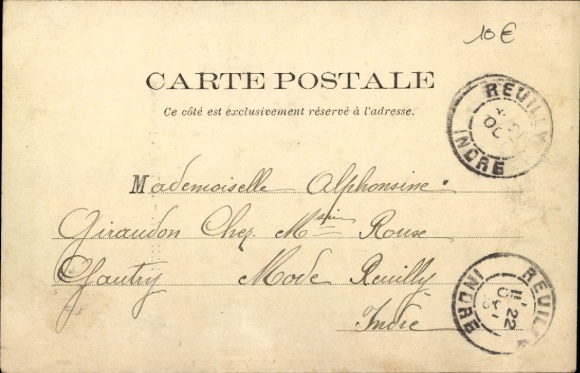 10€
CARTE POSTALE
Ce côté est exclusivement réservé à l'adresse.
REUILLY
INDRE
Mademoiselle Alphonsine
Giraudon Chez Mme Rouse
Mode Reuilly
Indre
REUILLY
22
INDRE